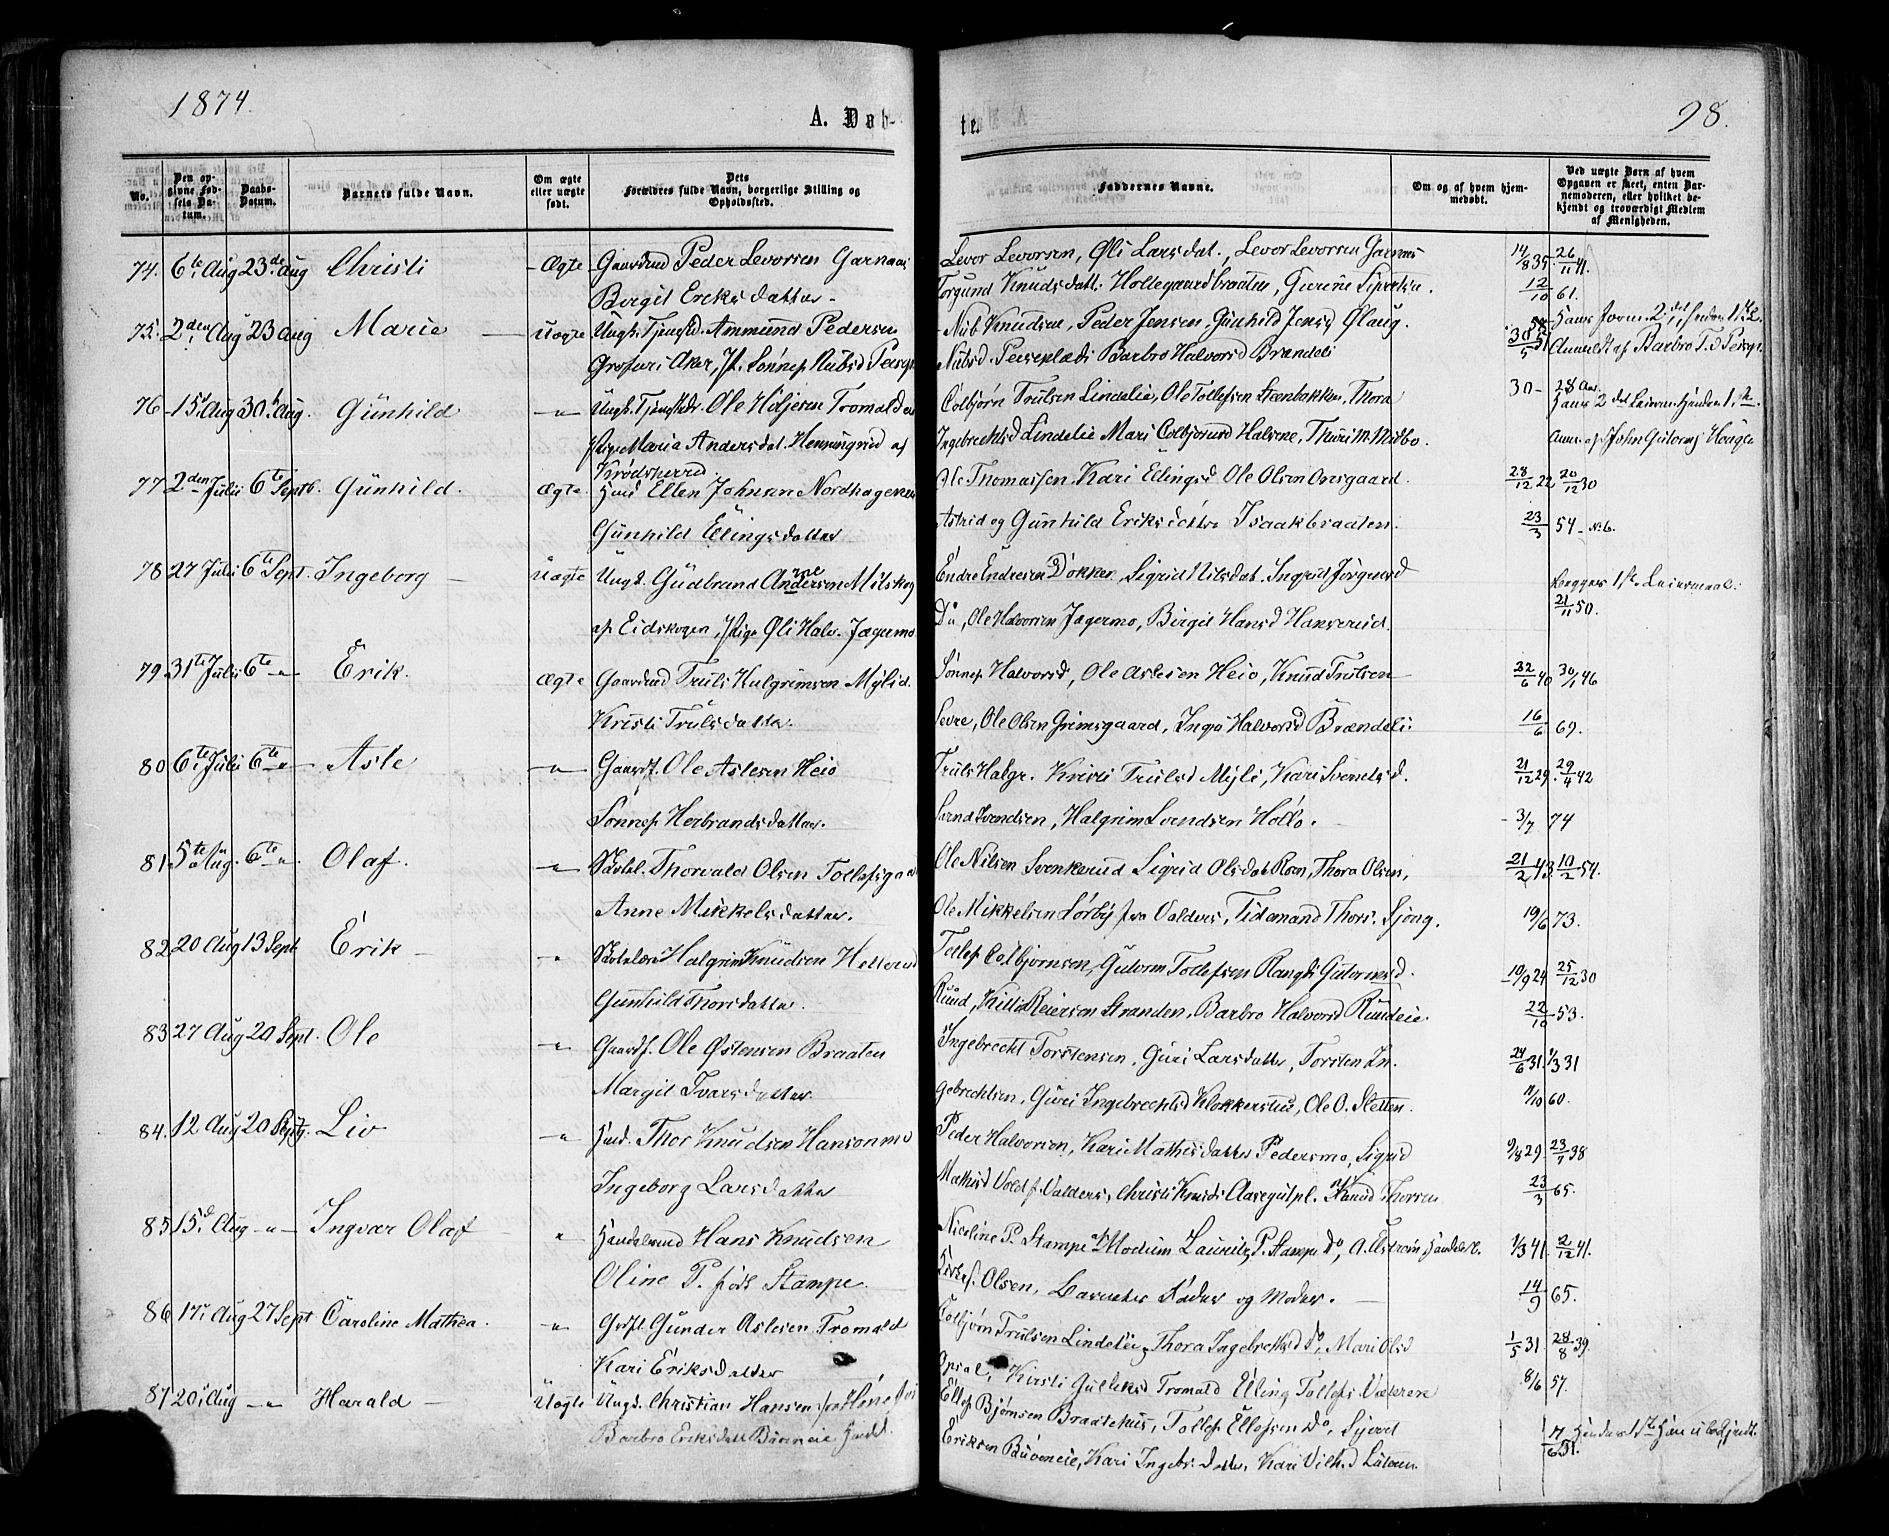 1874.
A. Døb-
te.
98.
No.
Den opgivne Fødsels Datum.
Daabs-Datum.
Barnets fulde Navn.
Om ægte eller uægte født.
Dets Forældres fulde Navn, borgerlige Stilling og Opholdssted.
Faddernes Navne.
Om og af hvem hjemmedøbt.
Ved uægte Børn af hvem Opgaven er skeet, enten Barnemoderen, eller hvilket bekjendt og troværdigt Medlem af Menigheden.
74. 6te Aug 23de Aug Christi Ægte Gaardmd Peder Levorsen Garnaas
Birgit Eriksdatter
Levor Levorsen, Øli Larsdat., Levor Levorsen Garnaas 14/8 35. 26/11 41.
Torgund Knudsdatt. Hollegaardbraaten, 12/10 61.
75. 2den Aug 23 Aug Marie Uægte Ungk. Tjenestd. Ammund Pedersen
Aker, P. Sønnep Nubsd
Nub Knudsen, Peder Jensen, Gunhild Jensd Ølaug.
Nubsd. Perseplads Barbro Halvorsd Brændeli 30/5
Anmeldt af Barbro T.
76 15d Aug 30te Aug. Gunhild " Ungk. Tjenestedr. Ole Hiljesen Tromald
Pige Maria Andersdat. Henningrud af
Krødsherred.
Colbjørn Trulsen Lindelie, Ole Tollefsen Steenbakken, Thora 30 - 28 Aar
Ingebrechtsd Lindelie Mari Colbjørnsd Halvene, Thuri M. Milbo.
Anm. af John Gutormsj Hougen
77 2den Julii 6te Septb. Gunhild. Ægte Hmd Ellen Johnsen Nordhagen
Gunhild Ellingsdatter
Ole Thomassen, Kari Ellingsd Ole Olsen Onsgaard. 28/12 22 20/12 30
Astrid og Gunhild Eriksdatter Isaakbraaten. 23/3 54 - No. 6.
78 27 Julii 6te Sept. Ingeborg Uægte Ungk. Gudbrand Andersen Milskog
af Eidskogen, Pige Øli Halv. Jægermo
Endre Endresen Døkker, Sigrid Nilsdat. Ingrid Jørgensd
Do, Ole Halvorsen Jægermo, Birgit Hansd Hanserud.
Begges 1ste Leiermaal.
21/11 50.
79. 31te Julii 6te " Erik. Ægte Gaardmd Truls Halgrimsen Mylid.
Kristi Trulsdatter.
Sønnep Halvorsd, Ole Aslesen Heio, Knud Trulsen 22/6 40 30/1 46
Sevre, Ole Olsen Grimsgaard, Inga Halvorsd Brændeli 16/6 69.
80 6te Julii 6te " Asle " Gaardf. Ole Aslesen Heio
Sønnep Herbrandsdatter.
Truls Halgr. Kristi Trulsd Myli, Kari Svendsd. 21/12 29. 29/4 42
Svendsen, Halgrim Svendsen Hollo. 3/7 74
81. 5te Aug. 6te " Olaf. " Skolel. Thorvald Olsen Tollefsgaard
Anne Mikkelsdatter.
Ole Nilsen Svenkerud Sigrid Olsdat. Roen, Thora Olsen, 21/2 43. 10/2 54.
Ole Mikkelsen Sørby fra Valders, Tidemand Thors. Sjong. 19/6 73.
82 20 Aug 13 Sept Erik - " Skolelær Halgrim Knudsen Hellerud
Gunhild Thorsdatter.
Tollef Colbjørnsen, Gutorm Tollefsen Rangdi Gutormsd. 10/9 24 25/12 30
Ruud, Killid Reiersen Stranden, Barbro Halvorsd Rudeie. 22/10 53.
83 27 Aug 20 Sept. Ole " Gaardf. Ole Østensen Braaten
Margit Ivarsdatter
Ingebrecht Torstensen, Guri Larsdatter, Torsten In- 24/6 31. 1/3 31
gebrechtsen, Guri Ingebrechtsd Klokkerstue, Ole O. Sletten. 11/10 60.
84. 12 Aug 20 Sept. Liv " Hmd. Thor Knudsen Hansonmo
Ingeborg Larsdatter
Peder Halvorsen, Kari Mathisdatter Pedersmo, Sigrid 9/8 29. 23/7 38
Mathisd Vold f. Valders, Christi Knudsd. Knud Thorsen 23/3 65.
85 15d. Aug " Ingvar Olaf " Handelsmd Hans Knudsen
Oline P. født Stampe.
Nicoline P. Stampe af Modum Lauritz P. Stampe Do, 1/3 41. 2/12 41.
Olsen, Barnets Fader og Moder. 14/9 65.
86 17. Aug 27 Sept Caroline Mathea. " Gunder Aslesen Tromald
Kari Eriksdatter
Colbjørn Trulsen Lindelie, Thora Ingebrechtsd Do, Mari Olsd 1/5 31 28/8 39.
Opsal, Kirsti Gulliksd Tromald Elling Tollefs. 8/6 57.
87 20. Aug " Harald Uægte Ungk. Christian Hansen
Barbro Eriksdatt. Bueneie
Ellef Bjørnsen Braatehus, Tollef Ellefsen Do, Sjuvd
Eriksen Bueneie, Kari Ingebr.datter, Kari Vilh.d